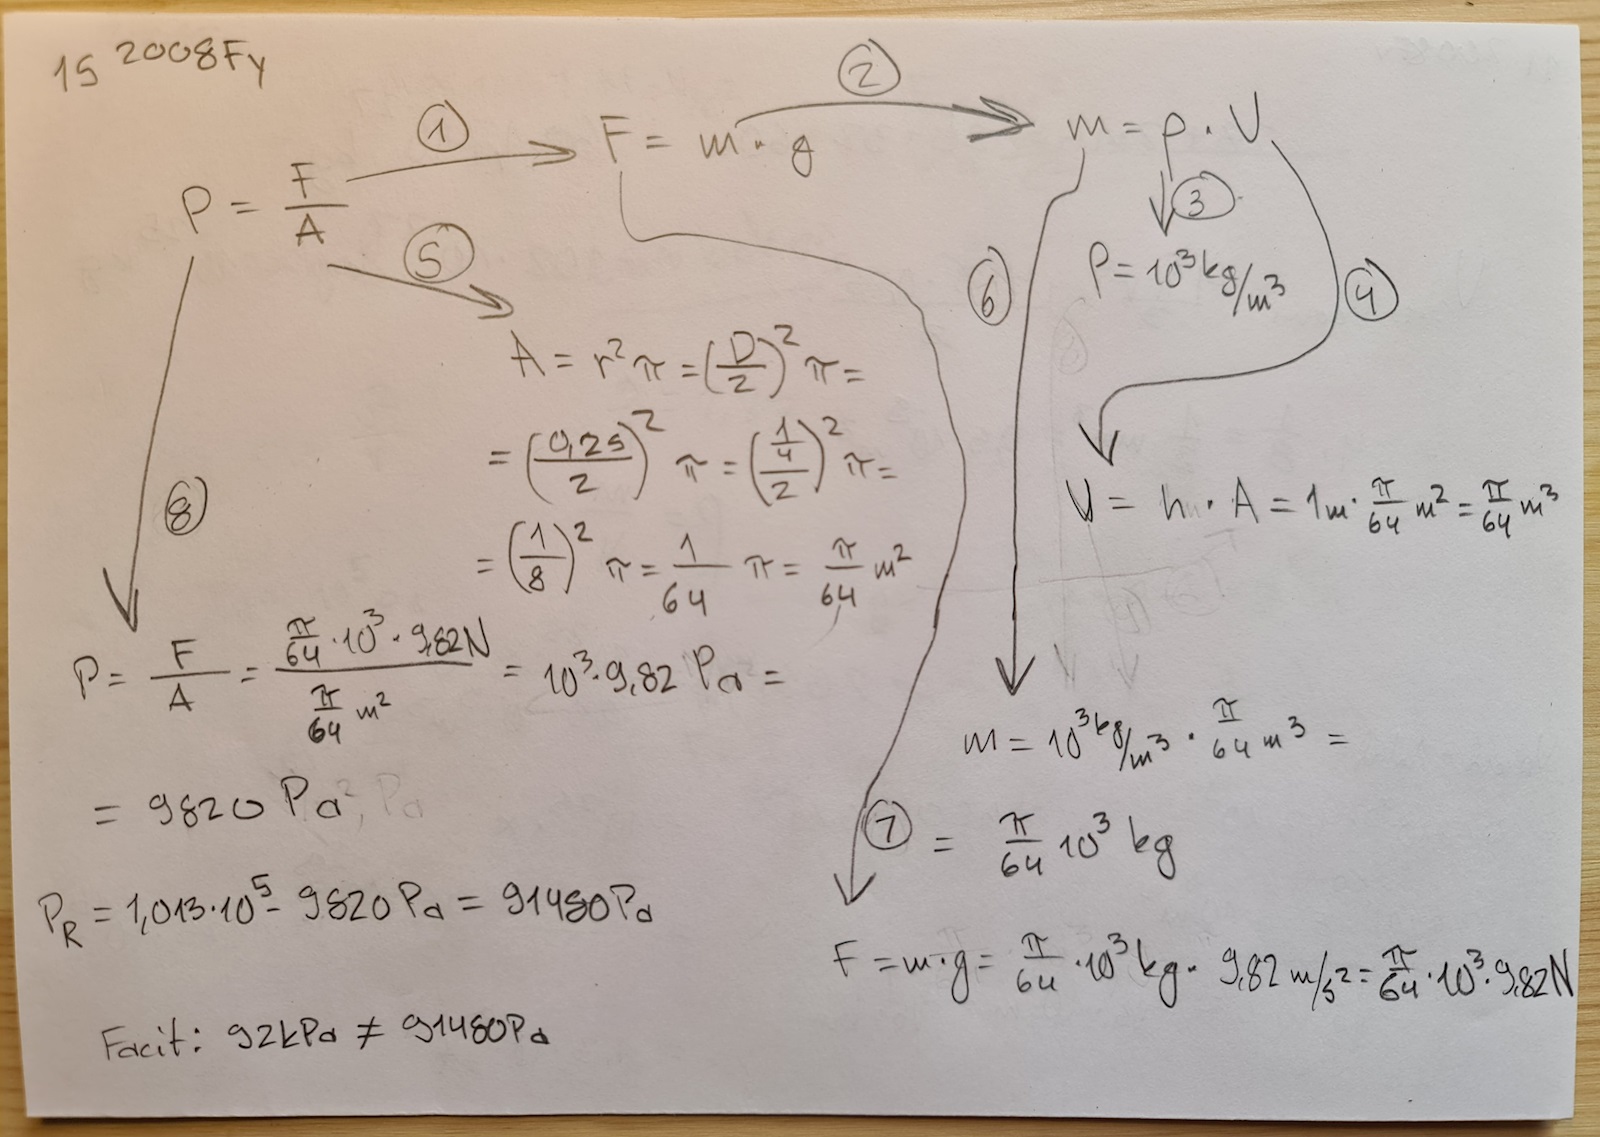 15 2008Fy
①
②
P = F/A
F = m · g
m = ρ · V
③
ρ = 10³ kg/m³
④
⑤
A = r²π = (D/2)² π =
= (0,25/2)² π = (1/4/2)² π =
= (1/8)² π = 1/64 π = π/64 m²
⑥
V = h · A = 1m · π/64 m² = π/64 m³
⑧
P = F/A = π/64 · 10³ · 9,82N / π/64 m² = 10³ · 9,82 Pa =
= 9820 Pa
m = 10³ kg/m³ · π/64 m³ =
= π/64 10³ kg
⑦
P_R = 1,013·10⁵ - 9820 Pa = 91480Pa
F = m·g = π/64 · 10³ kg · 9,82 m/s² = π/64 · 10³ · 9,82N
Facit: 92kPa ≠ 91480Pa